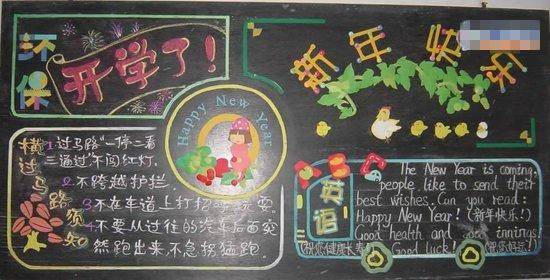 环保
开学了!
新年
Happy New Year
横过马路须知
1.过马路"一停二看
三通过"不闯红灯.
2.不跨越护拦.
3.不在车道上打招呼玩耍.
4.不要从过往的汽车后面突
然跑出来,不急拐猛跑.
英语
The New Year is coming,
people like to send their
best wishes. Can you read:
Happy New Year! (新年快乐!)
Good health and good innings!
Good luck!